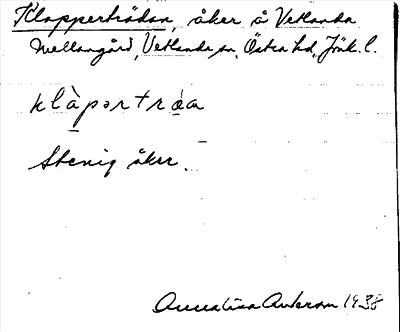 Klappertrådan, åker å Vetlanda
Mellangård, Vetlanda sn, Östra hd, Jönk. l.
klàpərtrəa
Stenig åker.
Annalisa Anderson 1938